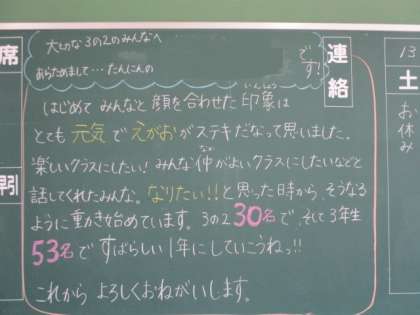 大切な3の2のみんなへ
あらためまして…たんにんの
です!
はじめて みんなと 顔を合わせた 印象は
いんしょう
とても 元気で えがおが ステキだなって思いました。
楽しいクラスにしたい!みんな仲がよいクラスにしたいなどと
なか
話してくれたみんな。なりたい!!と思った時から、そうなる
ように動き始めています。3の2 30名で、そして3年生
53名で すばらしい1年にしていこうねっ!!
これから よろしくおねがいします。
連絡
13
土
お休み
席